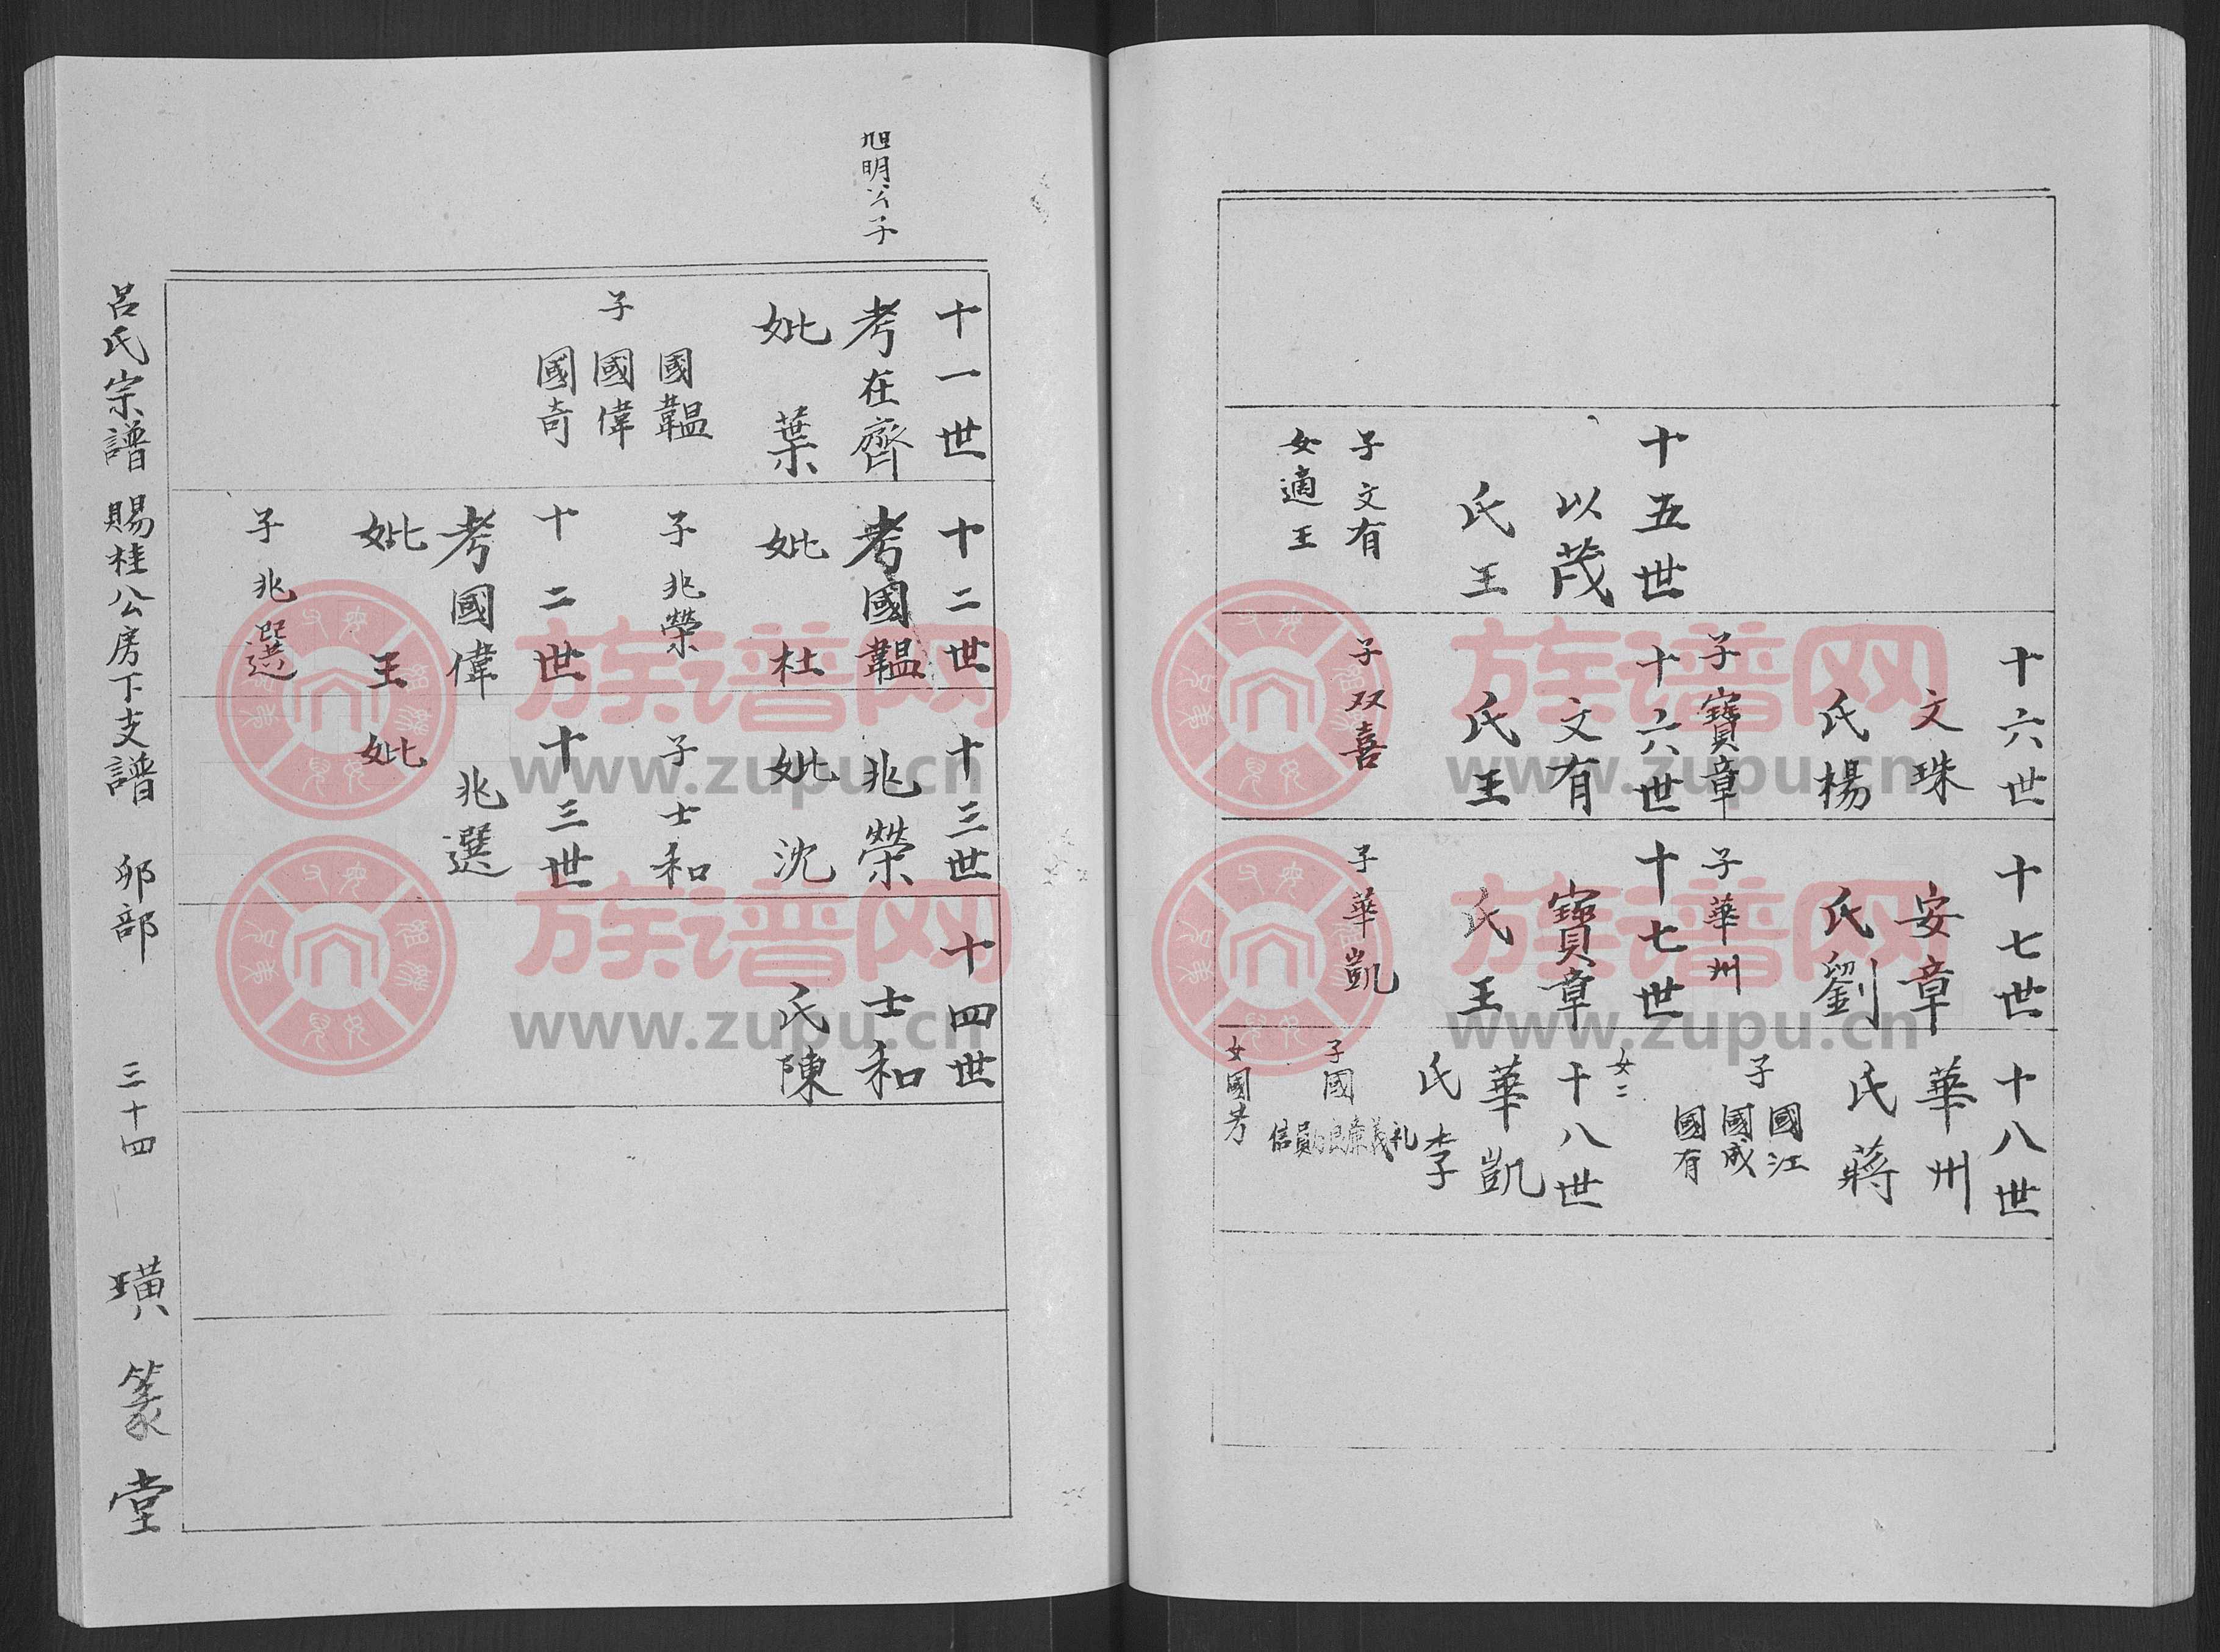 十六世
文珠
氏楊
子寶章
十七世
安章
氏劉
子華州
十八世
華州
氏蔣
子
國江
國成
國有
女二
十五世
以茂
氏王
子文有
女適王
十六世
文有
氏王
子双喜
十七世
寶章
氏王
子華凱
十八世
華凱
氏李
子國
礼
義
廉
良
員
信
女國芳
旭明公子
十一世
考在齊
妣葉
子
國韞
國偉
國奇
十二世
考國韞
妣杜
子兆榮
十三世
考兆榮
妣沈
子士和
十四世
士和
氏陳
十二世
考國偉
妣王
子兆選
十三世
兆選
妣
呂氏宗譜 賜桂公房下支譜 卯部 三十四 璜篆堂
族谱网
www.zupu.cn
族谱网
www.zupu.cn
族谱网
www.zupu.cn
族谱网
www.zupu.cn